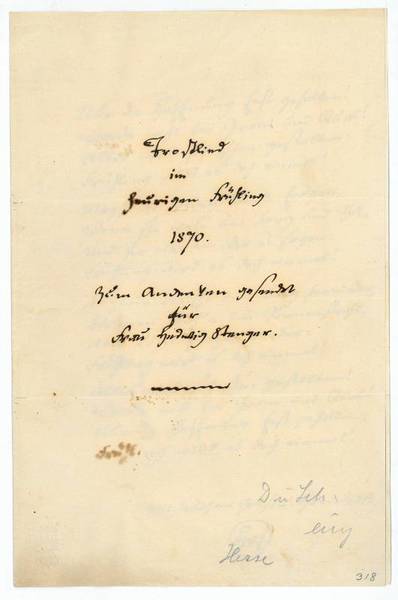 Trostlied
im
heurigen Frühling
1870.
Zum Andenken gesendet
für
Frau Hedwig Stenger.
Hesse
318